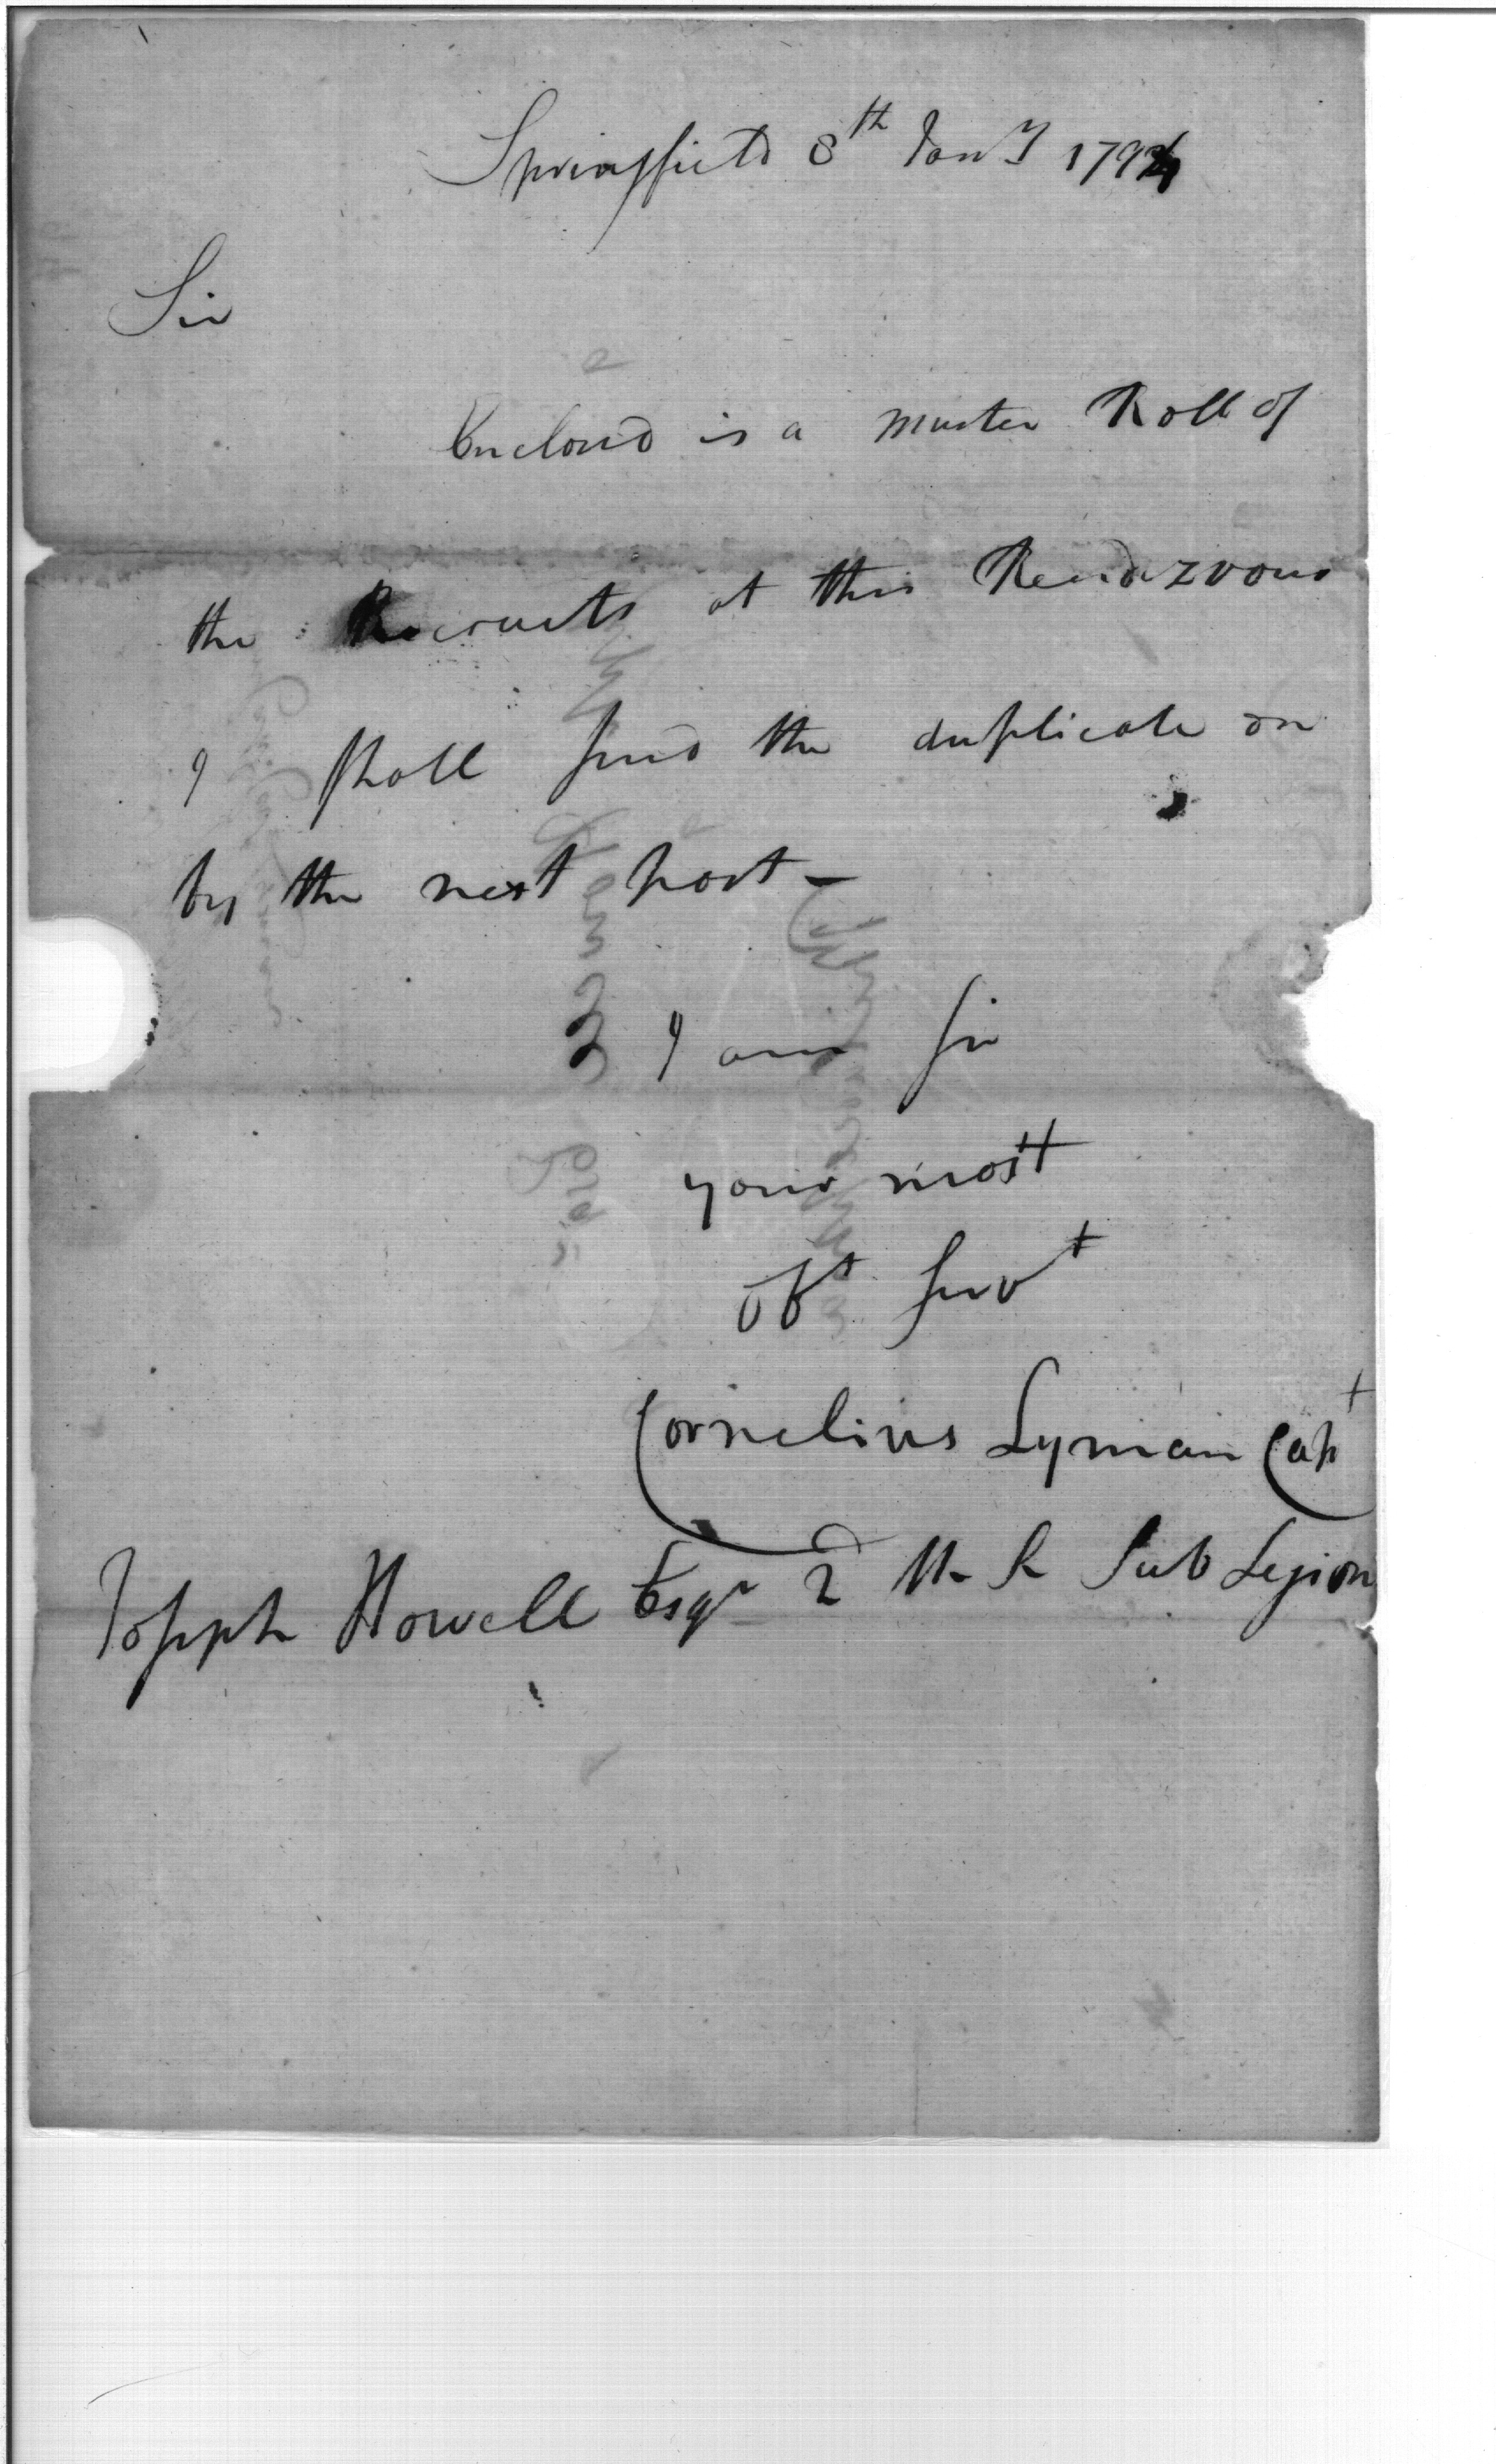 Springfield 8th Jany 1794
Sir
Enclosed is a muster Roll of
the Recruits at this Rendezvous
I shall send the duplicate on
by the next post —
I am Sir
your most
obt Servt
Cornelius Lyman Capt
Joseph Howell Esqr 2d U. S. Sub Legion